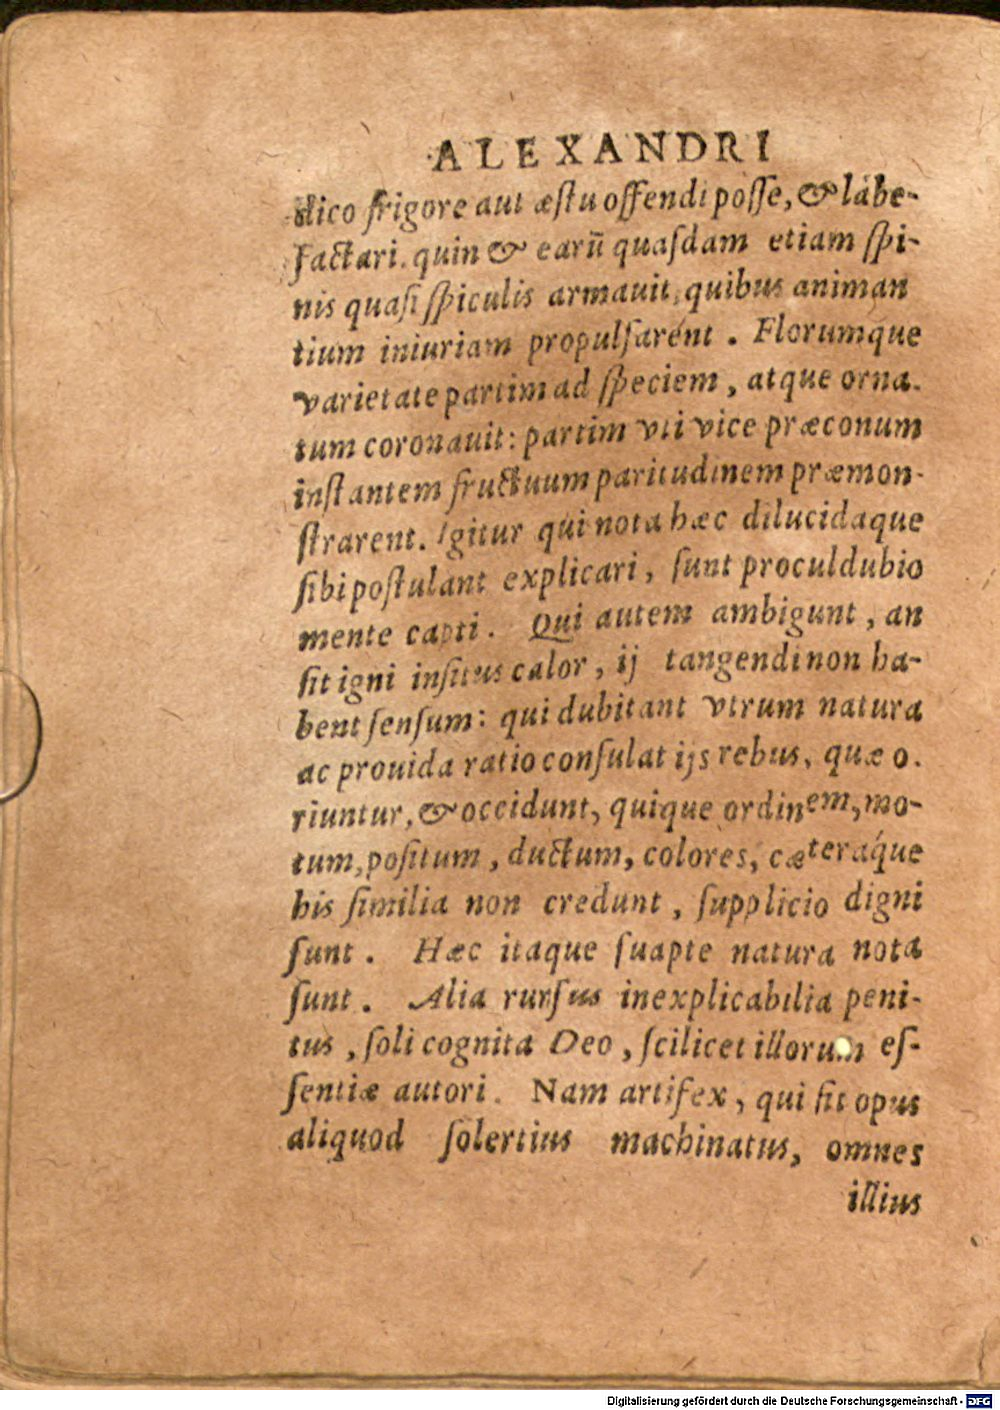 ALEXANDRI
dico frigore aut æstu offendi posse, & labe-
factari. quin & earū quasdam etiam spi-
nis quasi spiculis armauit, quibus animan
tium iniuriam propulsarent. Florumque
varietate partim ad speciem, atque orna-
tum coronauit: partim vti vice præconum
instantem fructuum paritudinem præmon-
strarent. Igitur qui nota hæc dilucidaque
sibi postulant explicari, sunt proculdubio
mente capti. Qui autem ambigunt, an
sit igni insitus calor, ij tangendi non ha-
bent sensum: qui dubitant vtrum natura
ac prouida ratio consulat ijs rebus, quæ o.
riuntur, & occidunt, quique ordinem, mo-
tum, positum, ductum, colores, cæteráque
his similia non credunt, supplicio digni
sunt. Hæc itaque suapte natura nota
sunt. Alia rursus inexplicabilia peni-
tus, soli cognita Deo, scilicet illorum es-
sentiæ autori. Nam artifex, qui sit opus
aliquod solertius machinatus, omnes
illius
Digitalisierung gefördert durch die Deutsche Forschungsgemeinschaft - DFG